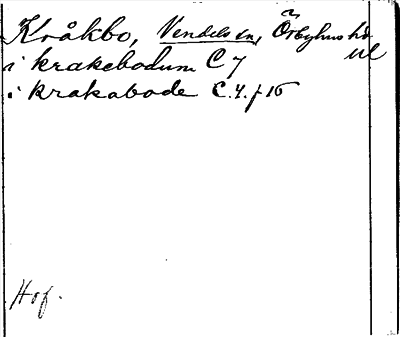 Kråkbo, Vendels sn, Örbyhus hd
Ul
i krakebodum C 7
i krakabode C. 4. f 16
Hof.